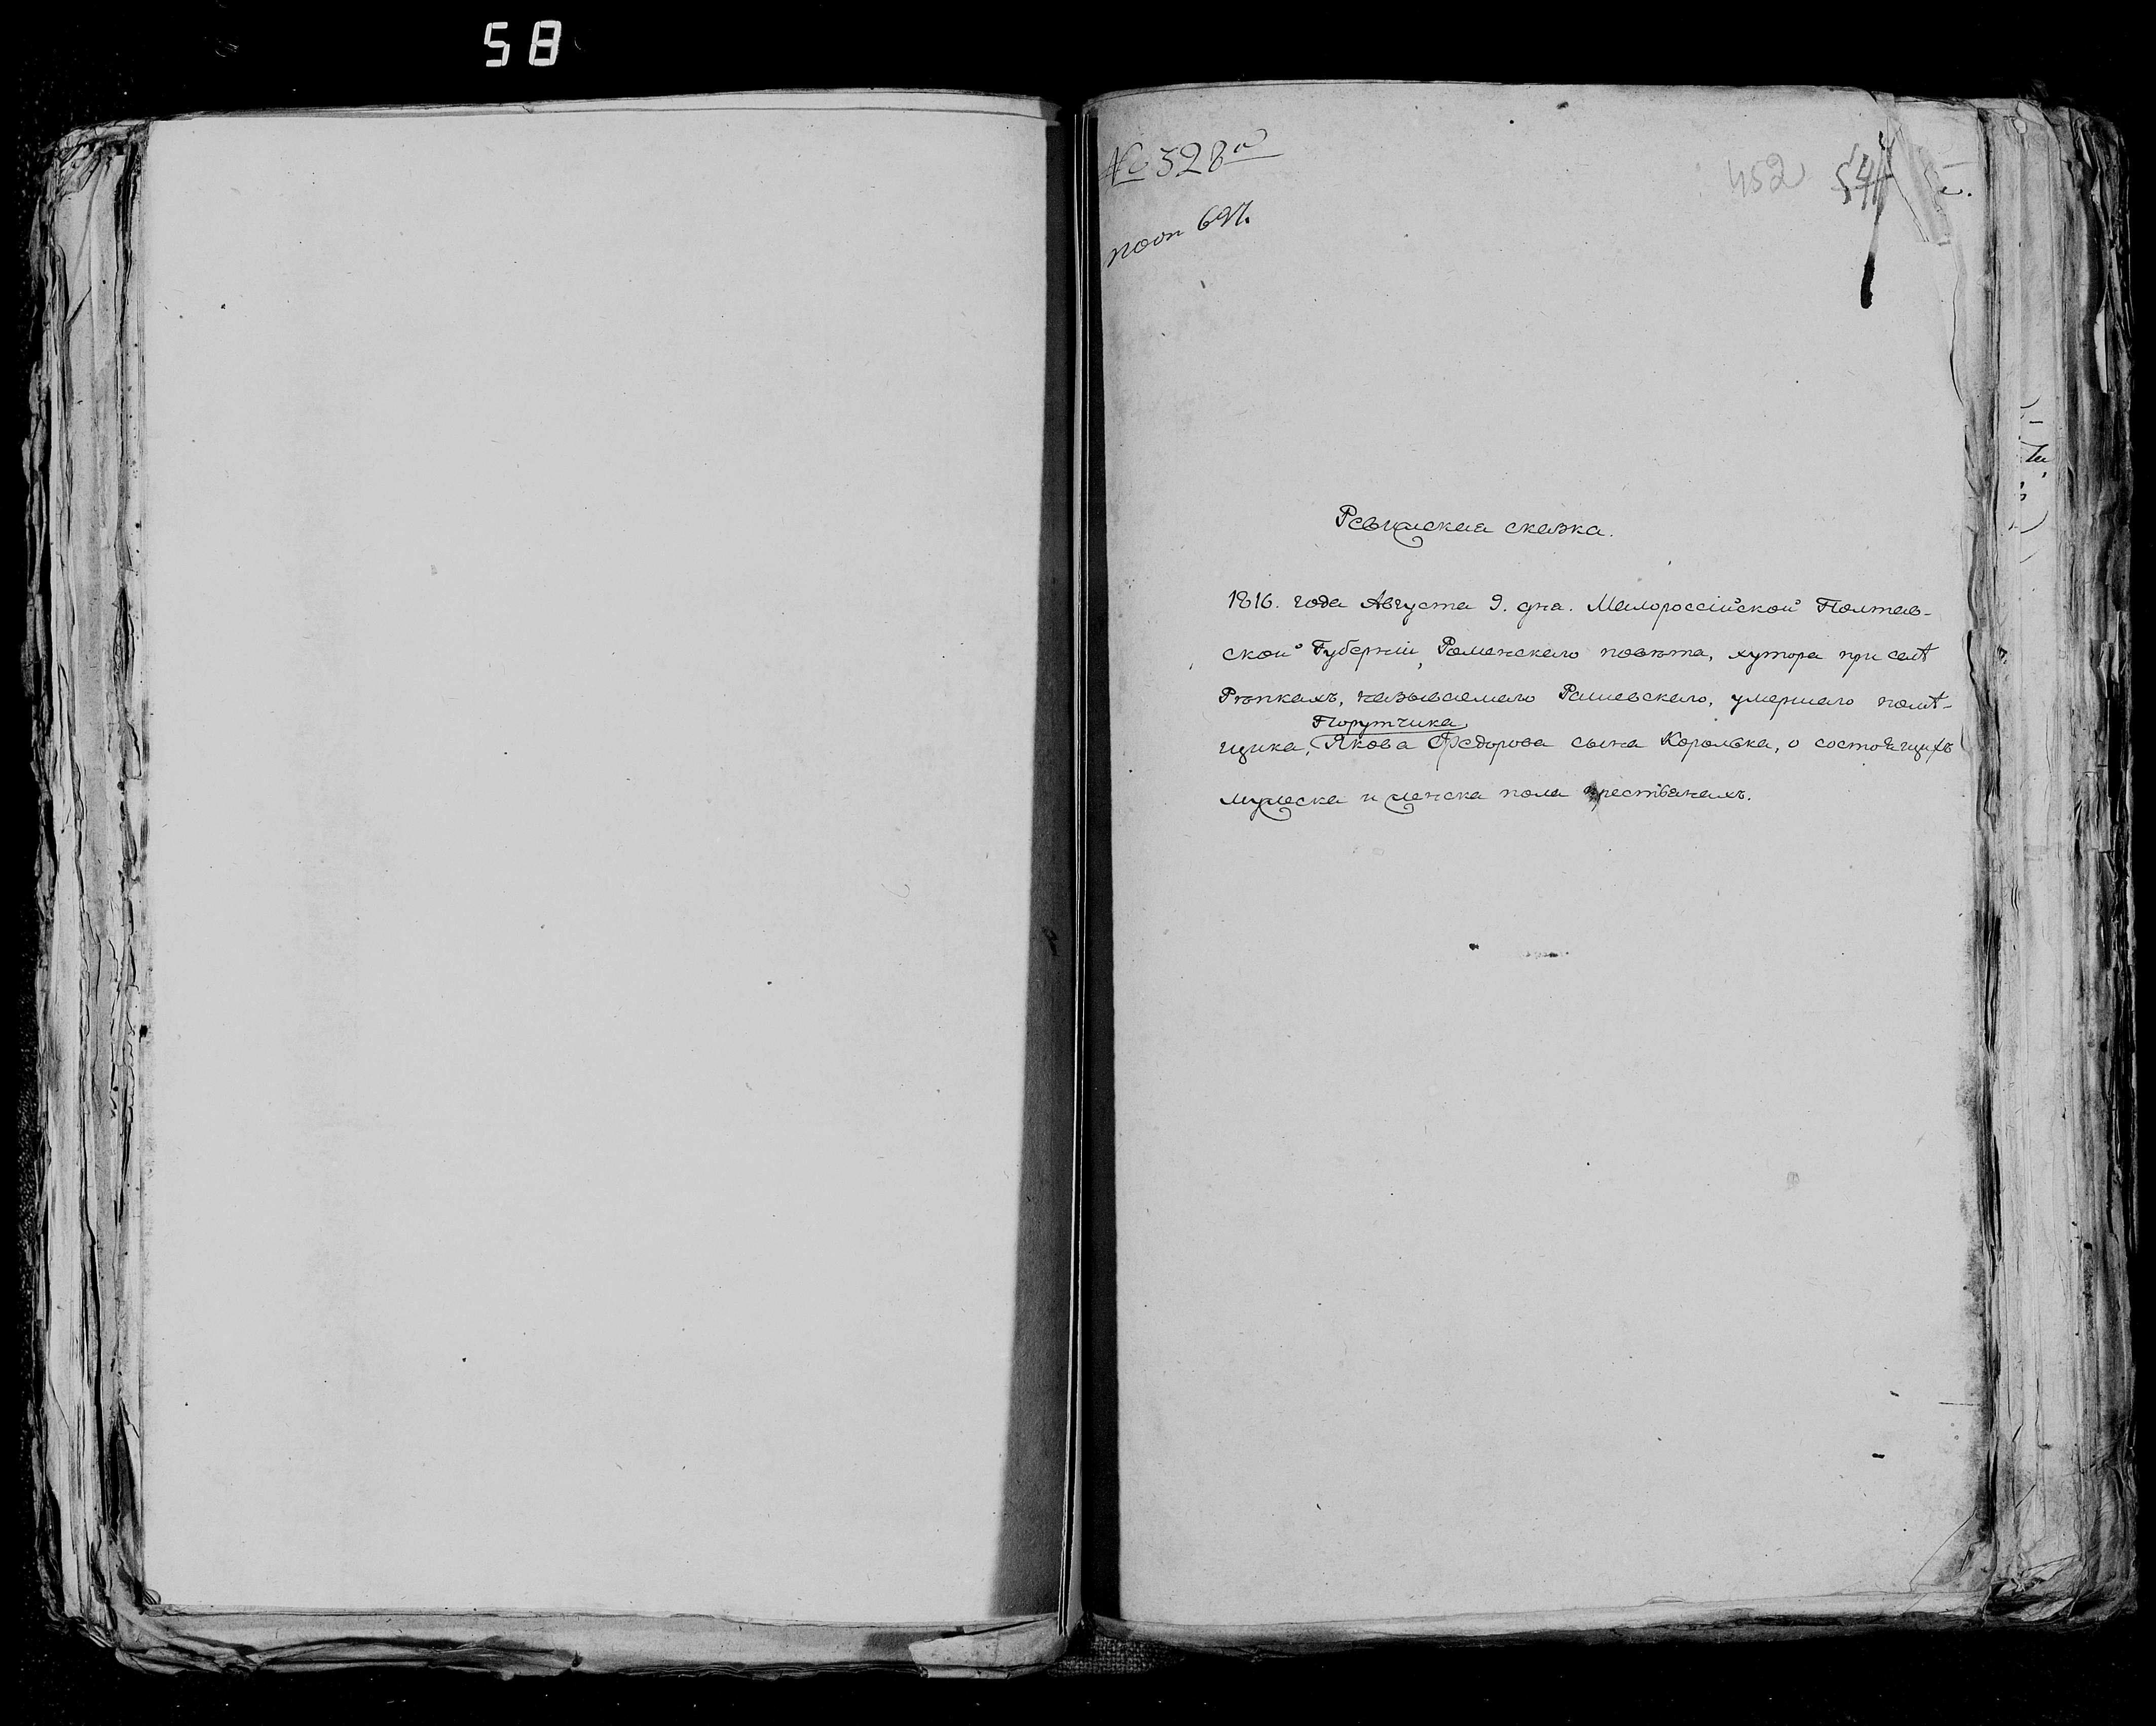 58
№ 528й
452
Ревижская сказка.
1816. года Августа 9. дня. Малороссійской Полтав-
ской Губерніи, Роменского повѣта, хутора при селѣ
Рѣпкахъ, называемаго Рашевскаго, умершаго помѣ-
Порутчика
щика, Якова Федорова сына Королька, о состоящихъ
мужеска и женска пола крестьянахъ.